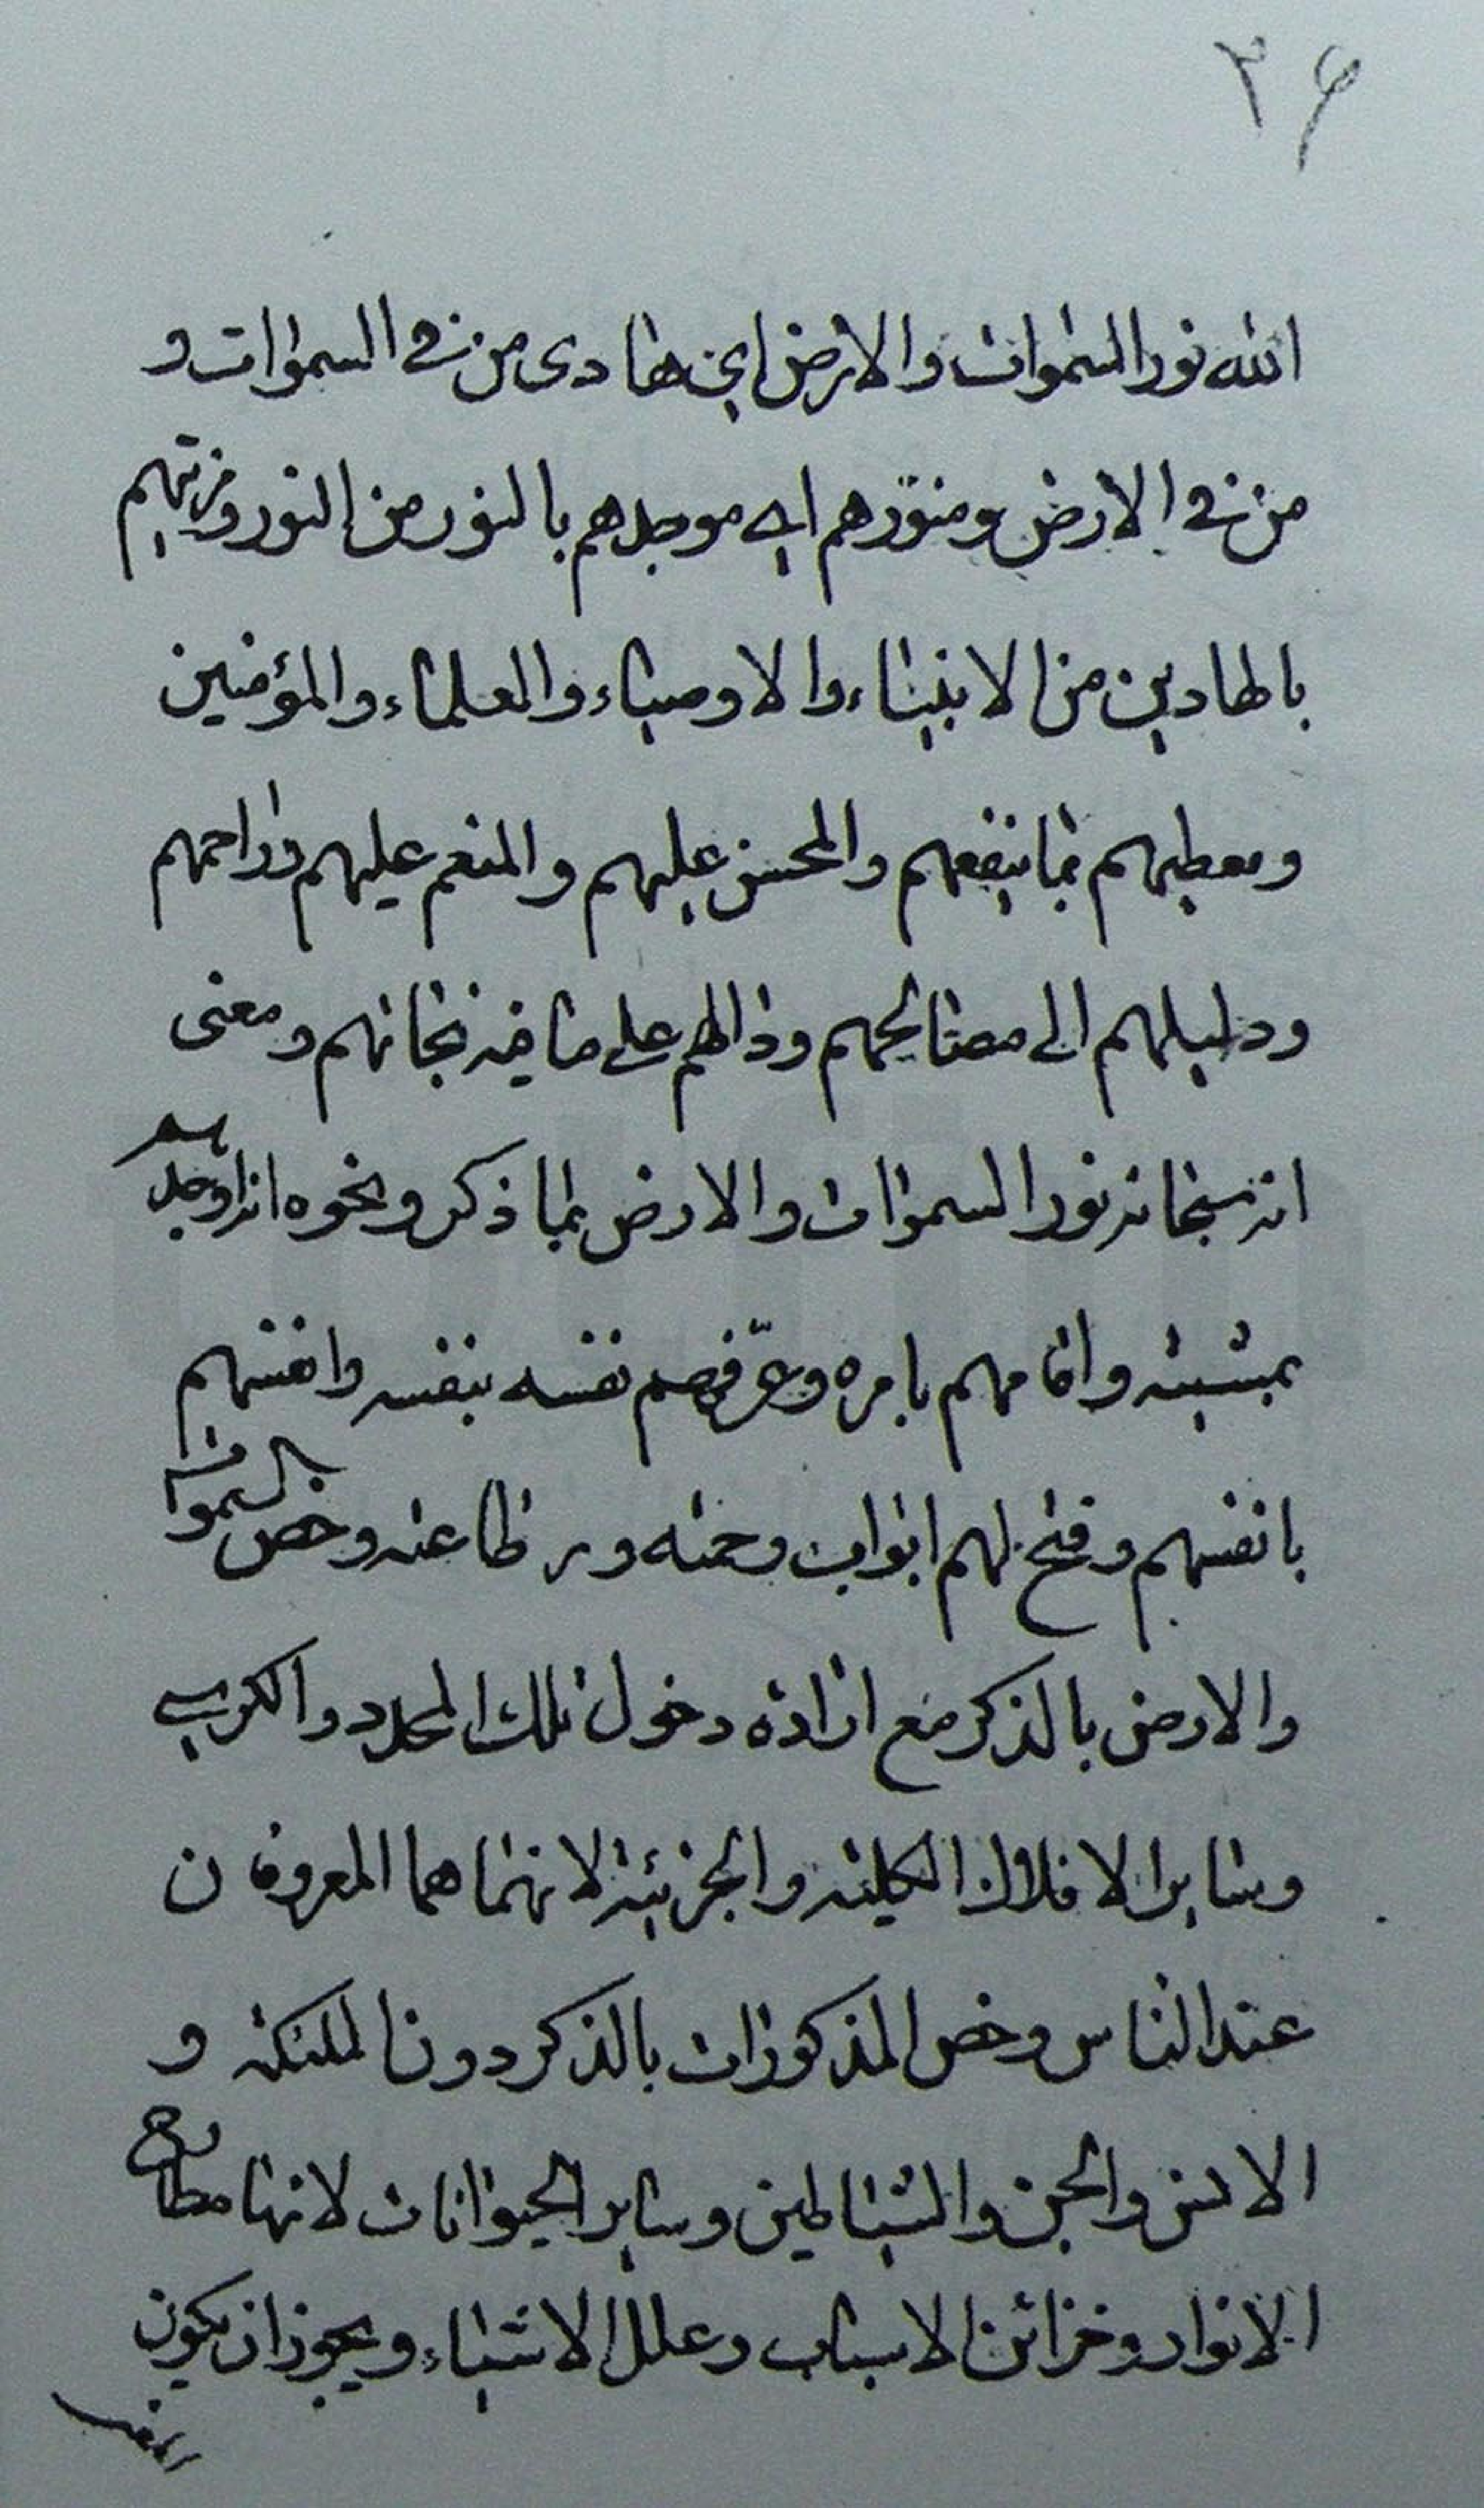 ۳۶
الله نور السموات والارض اي هادى من في السموات و
من في الارض ومنوّرهم اي موجدهم بالنور من النور ومزينهم
بالهادين من الانبياء والاوصياء والعلماء والمؤمنين
ومعطيهم بما ينفعهم والمحسن عليهم والمنعم عليهم وراحمهم
ودليلهم الى مصالحهم ودالهم على ما فيه نجاتهم ومعنى
انه سبحانه نور السموات والارض بما ذكر ونحوه انه اوجدهم
بمشيته واقامهم بامره وعرّفهم نفسه بنفسه وانفسهم
بانفسهم وفتح لهم ابواب رحمته و طاعته وخص السموات
والارض بالذكر مع ارادة دخول تلك المحدد والكرسي
وساير الافلاك الكلية والجزئية لانهما هما المعروفان
عند الناس وخص المذكورات بالذكر دون الملئكة و
الانس والجن والشياطين وساير الحيوانات لانها مطارح
الانوار وخزائن الاسباب وعلل الاشياء ويجوز ان يكون